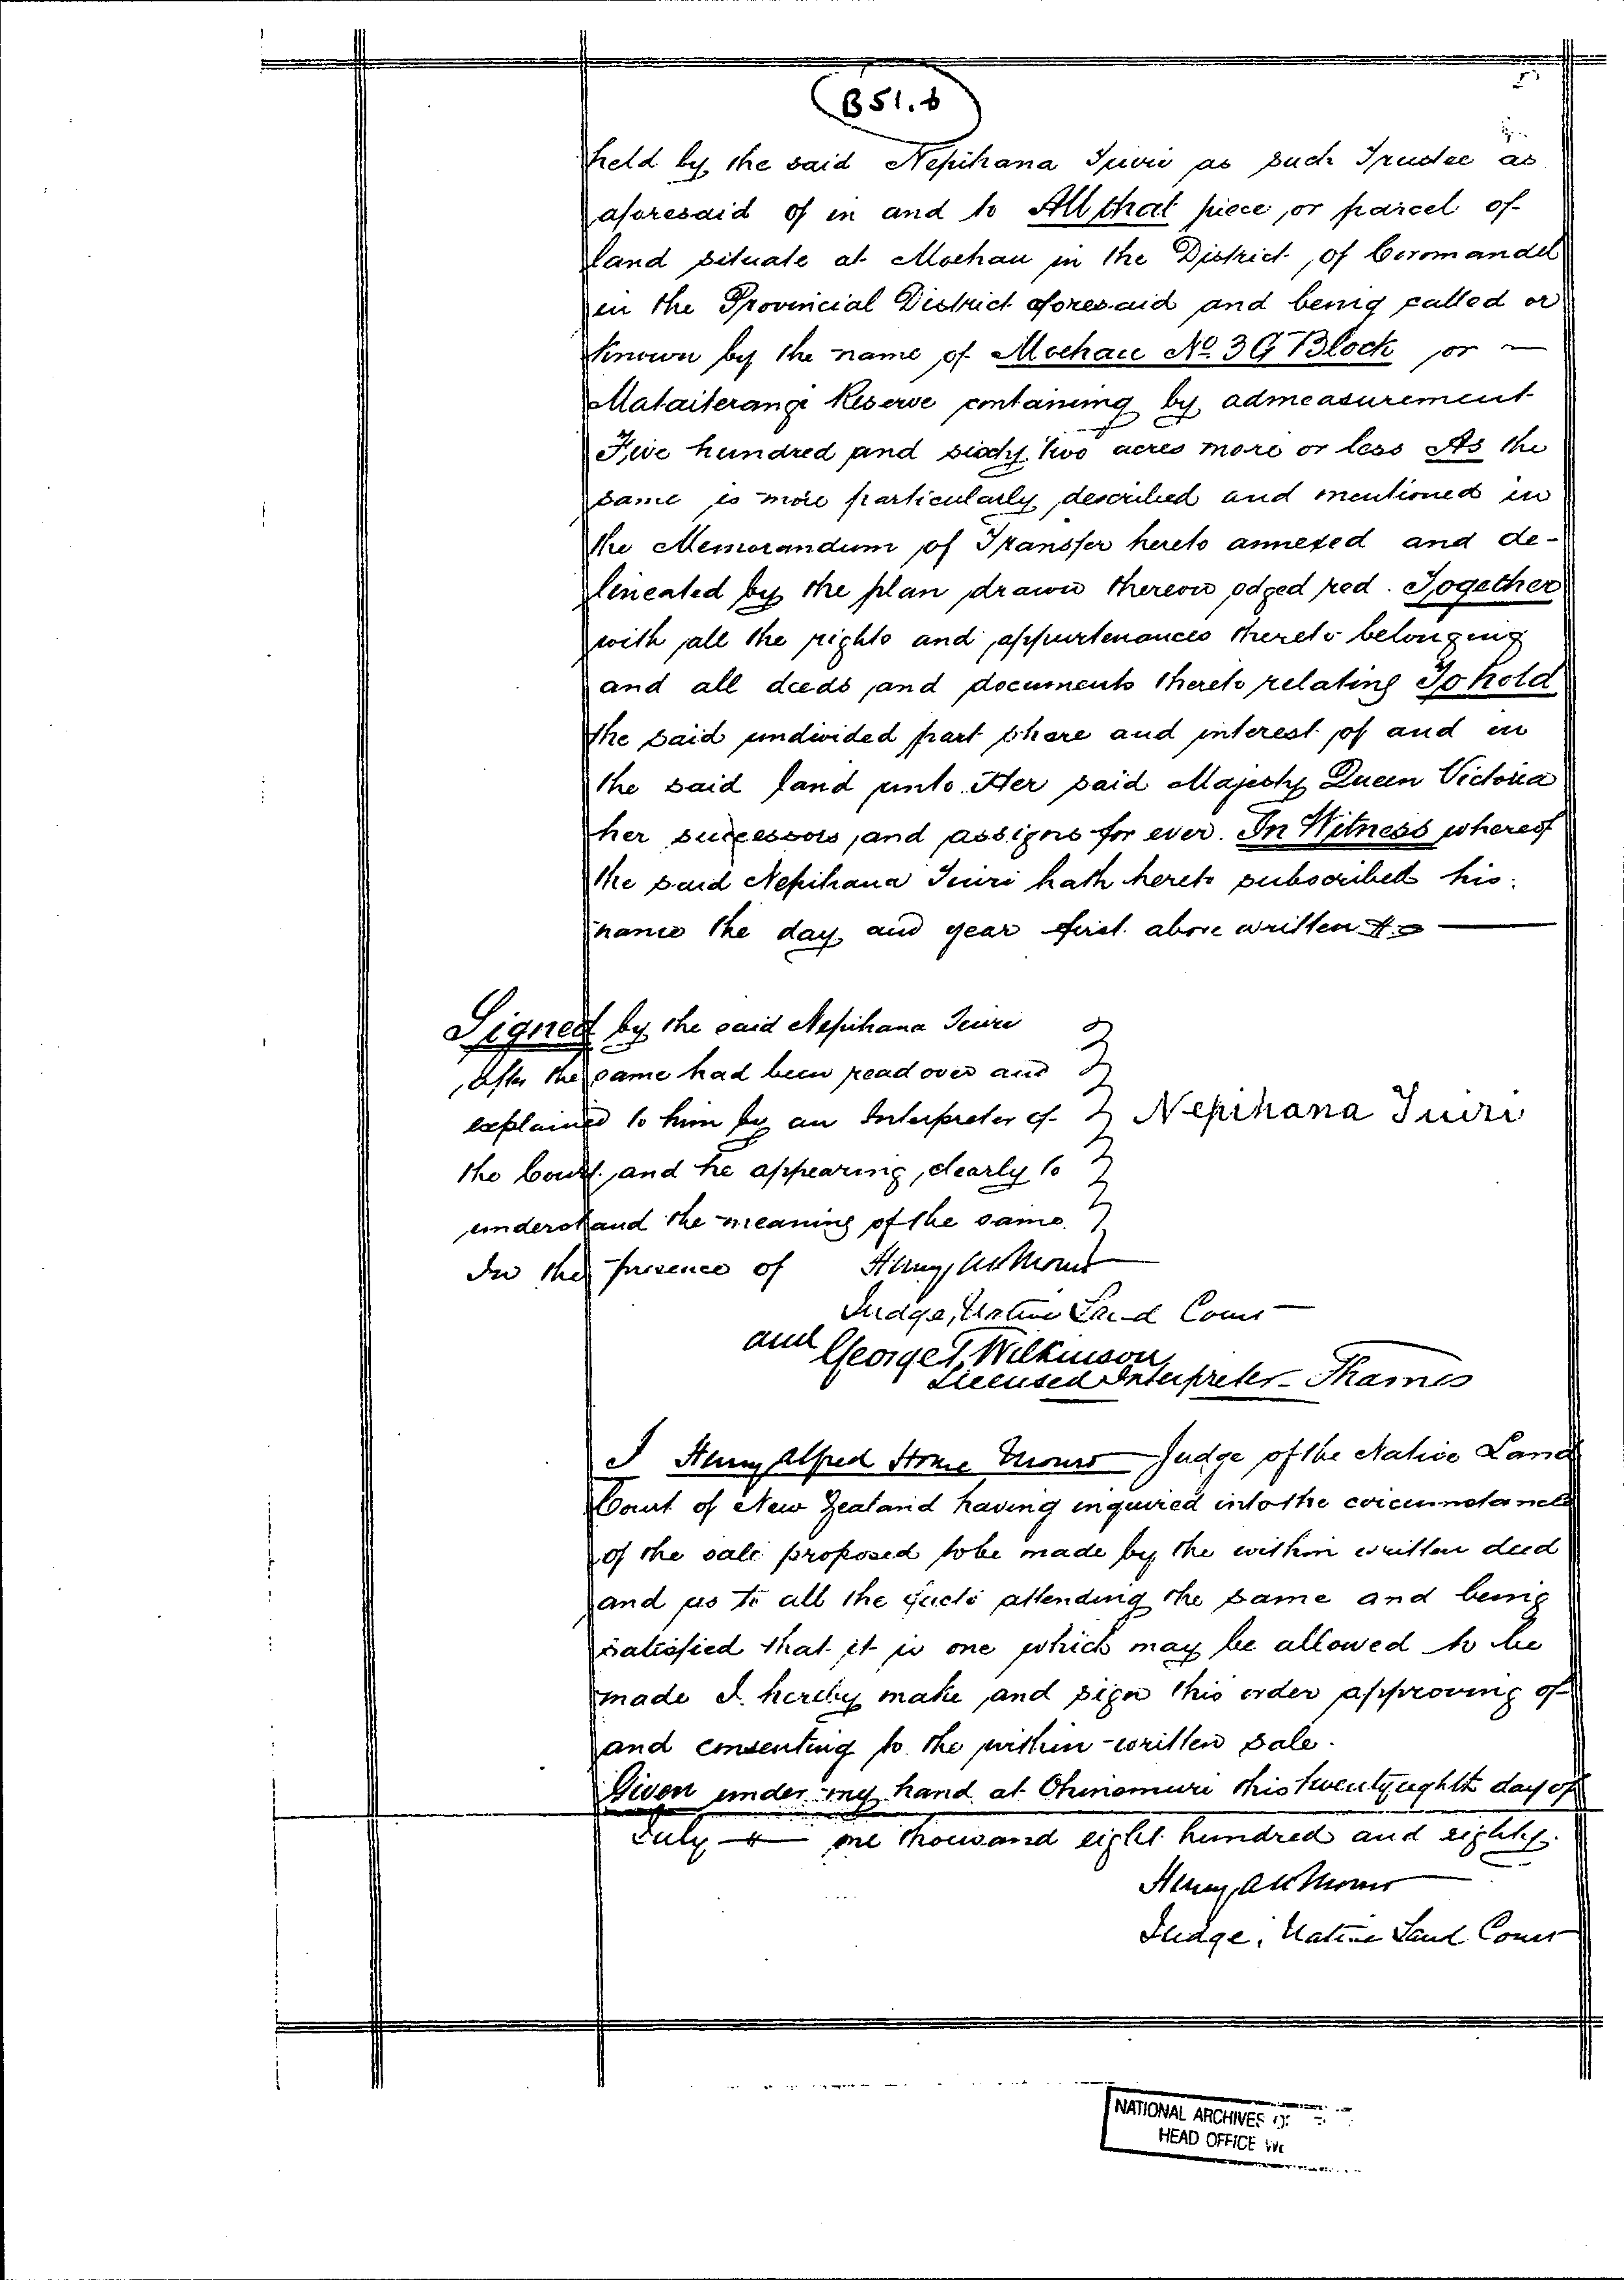 B51.b
held by the said Nepihana Tuiri as such Trustee as
aforesaid of in and to All that piece or parcel of
land situate at Moehau in the District of Coromandel
in the Provincial District aforesaid and being called or
known by the name of Moehau No. 3G Block or
Mataiterangi Reserve containing by admeasurement
Five hundred and sixty two acres more or less As the
same is more particularly described and mentioned in
the Memorandum of Transfer hereto annexed and de-
lineated by the plan drawn thereon edged red. Together
with all the rights and appurtenances thereto belonging
and all deeds and documents thereto relating To hold
the said undivided part share and interest of and in
the said land unto Her said Majesty Queen Victoria
her successors and assigns for ever. In Witness whereof
the said Nepihana Tuiri hath hereto subscribed his
name the day and year first above written
Signed by the said Nepihana Tuiri
after the same had been read over and
explained to him by an Interpreter of
Nepihana Tuiri
the Court and he appearing clearly to
understand the meaning of the same.
In the presence of Henry A H Monro
Judge, Native Land Court
and George T. Wilkinson
Licensed Interpreter - Thames
I Henry Alfred Home Monro Judge of the Native Land
Court of New Zealand having inquired into the circumstances
of the sale proposed to be made by the within written deed
and as to all the facts attending the same and being
satisfied that it is one which may be allowed to be
made I hereby make and sign this order approving of
and consenting to the within-written sale.
Given under my hand at Ohinemuri this twenty eighth day of
July one thousand eight hundred and eighty.
Henry A H Monro
Judge, Native Land Court
NATIONAL ARCHIVES
HEAD OFFICE